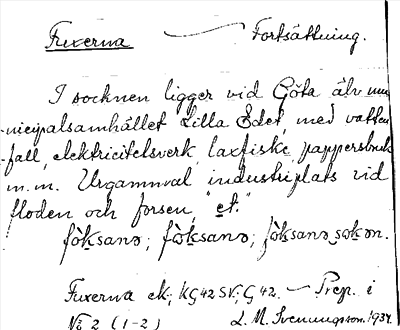 Fuxerna — Fortsättning.
I socknen ligger vid Göta älv mu-
nicipalsamhället Lilla Edet, med vatten-
fall, elektricitetsverk, laxfiske, pappersbruk
m.m. Urgammal industriplats vid
floden och forsen, "et."
Fuxerna sk; KG42 SV; G42. — Prep. i
No 2 (1-2) L. M. Svenungson. 1934.